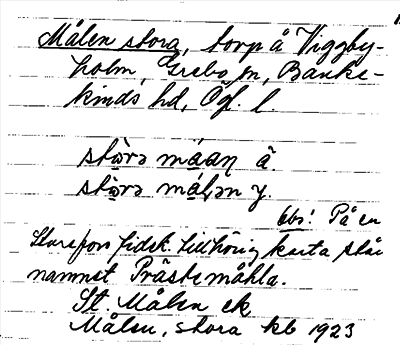 Målen stora, torp å Viggby-
holm, Grebo sn, Banke-
kinds hd, Ögl. l.
stòrə máan ä.
stòrə málən y.
Obs! På en
Storskifors fidsk. tillhörig karta står
namnet Prästemåhla.
St. Målen ek
Målen, stora kb 1923